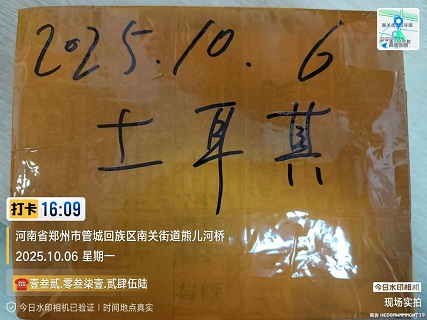 2025.10.6
土耳其
打卡 16:09
河南省郑州市管城回族区南关街道熊儿河桥
2025.10.06 星期一
壹叁贰.零叁柒壹.贰肆伍陆
今日水印相机已验证 | 时间地点真实
今日水印相机
现场实拍